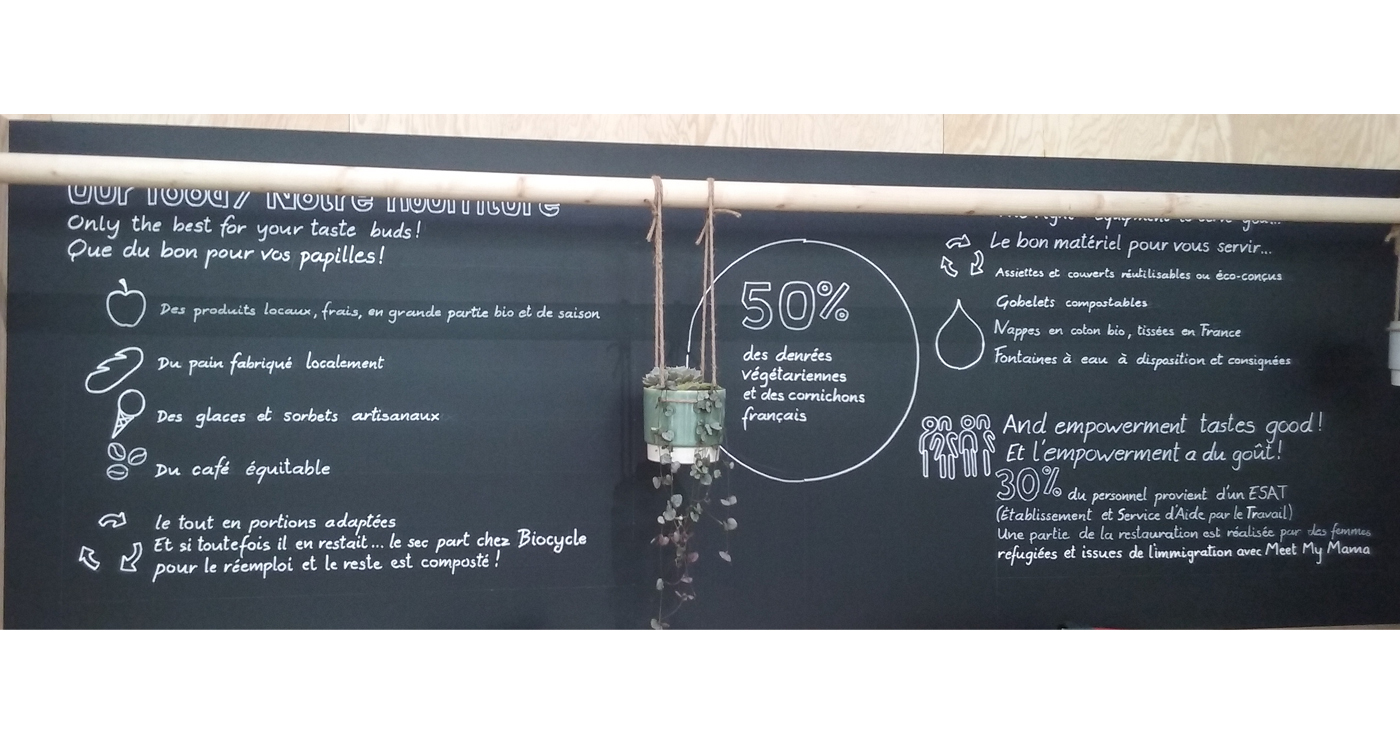 Our food / Notre nourriture
Only the best for your taste buds!
Que du bon pour vos papilles!
Des produits locaux, frais, en grande partie bio et de saison
Du pain fabriqué localement
Des glaces et sorbets artisanaux
Du café équitable
le tout en portions adaptées
Et si toutefois il en restait... le sec part chez Biocycle
pour le réemploi et le reste est composté!
50%
des denrées
végétariennes
et des cornichons
français
The right equipment to serve you...
Le bon matériel pour vous servir...
Assiettes et couverts réutilisables ou éco-conçus
Gobelets compostables
Nappes en coton bio, tissées en France
Fontaines à eau à disposition et consignées
And empowerment tastes good!
Et l'empowerment a du goût!
30% du personnel provient d'un ESAT
(Établissement et Service d'Aide par le Travail)
Une partie de la restauration est réalisée par des femmes
refugiées et issues de l'immigration avec Meet My Mama